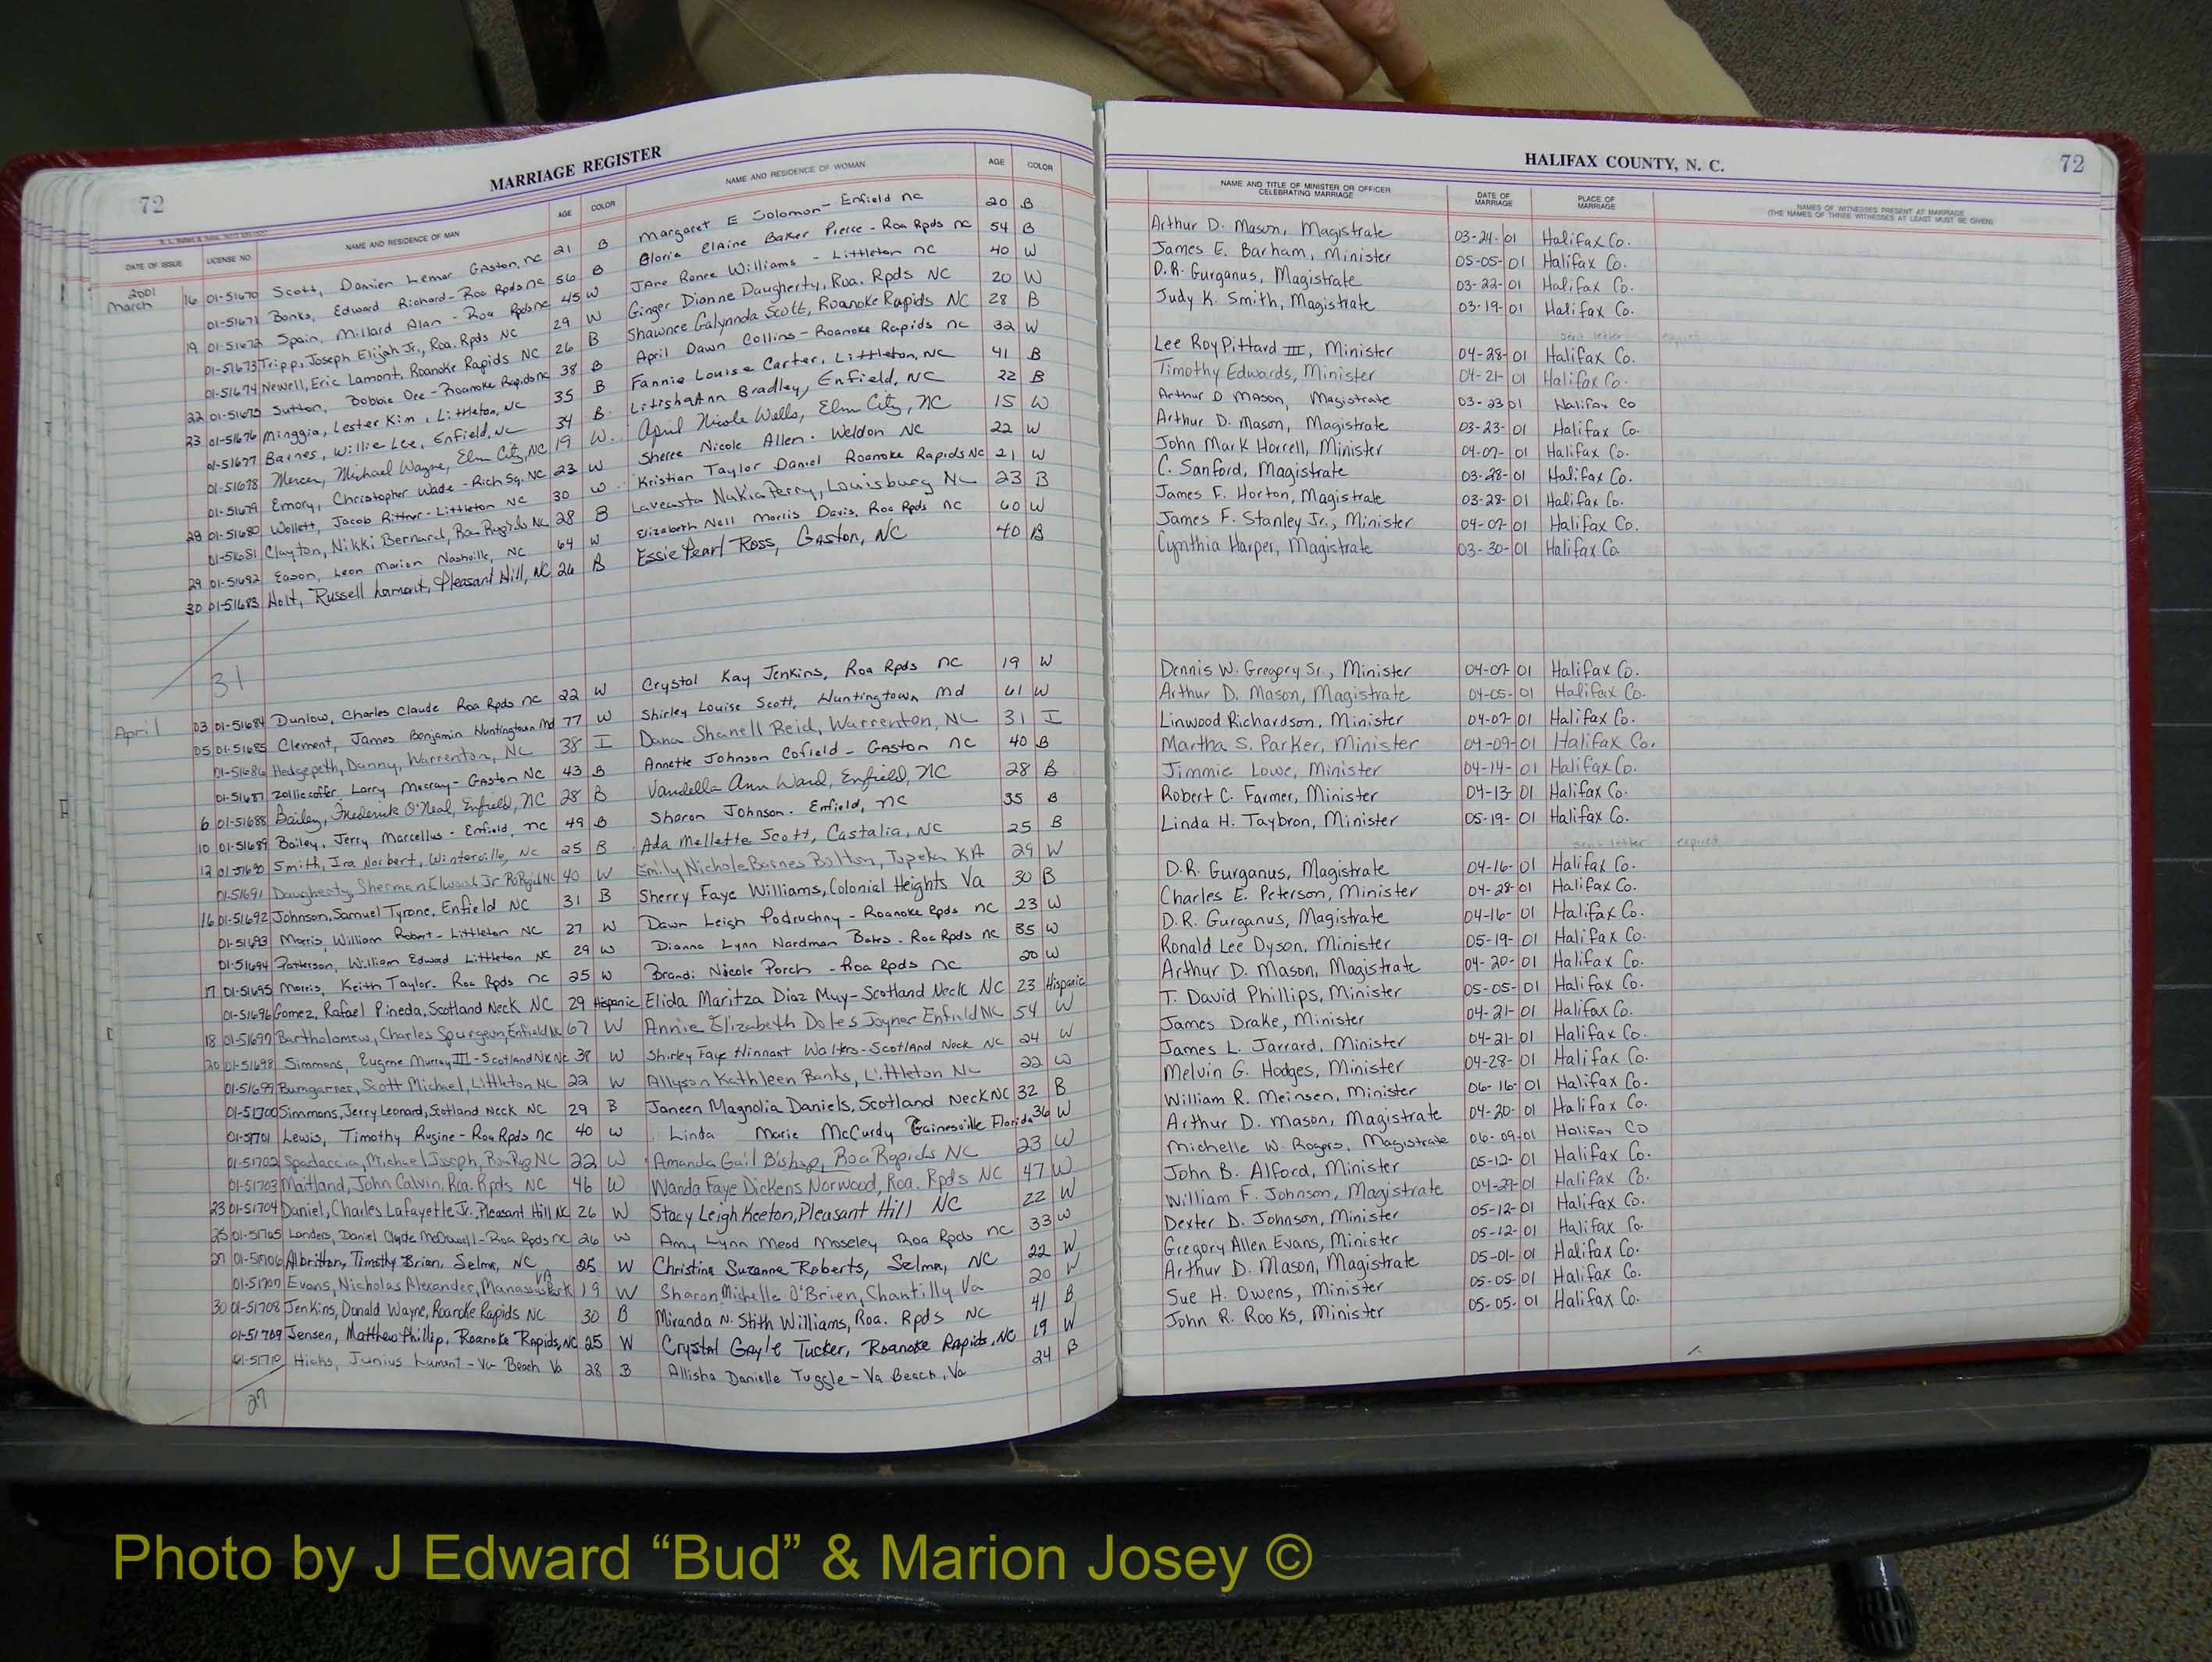 72 MARRIAGE REGISTER
DATE OF ISSUE LICENSE NO. NAME AND RESIDENCE OF MAN AGE COLOR NAME AND RESIDENCE OF WOMAN AGE COLOR
2001
March 16 01-51670 Scott, Damien Lemar Gaston, nc 21 B Margaret E Solomon - Enfield nc 20 B
01-51671 Banks, Edward Richard - Roa Rpds nc 56 B Gloria Elaine Baker Pierce - Roa Rpds nc 54 B
19 01-51672 Spain, Millard Alan - Roa Rpds nc 45 W Jane Renee Williams - Littleton nc 40 W
01-51673 Tripp, Joseph Elijah Jr., Roa. Rpds NC 29 W Ginger Dianne Daugherty, Roa. Rpds NC 20 W
01-51674 Newell, Eric Lamont, Roanoke Rapids NC 26 B Shawnee Galynnda Scott, Roanoke Rapids NC 28 B
22 01-51675 Sutton, Bobbie Dee - Roanoke Rapids nc 38 B April Dawn Collins - Roanoke Rapids nc 32 W
23 01-51676 Minggia, Lester Kim, Littleton, NC 35 B Fannie Louise Carter, Littleton, NC 41 B
01-51677 Barnes, Willie Lee, Enfield, NC 34 B. Litisha Ann Bradley, Enfield, NC 22 B
01-51678 Mercer, Michael Wayne, Elm City, NC 19 W. April Nicole Wells, Elm City, NC 15 W
01-51679 Emory, Christopher Wade - Rich Sq. NC 23 W Sheree Nicole Allen - Weldon NC 22 W
28 01-51680 Wollett, Jacob Rittner - Littleton NC 30 W Kristian Taylor Daniel Roanoke Rapids NC 21 W
01-51681 Clayton, Nikki Bernard, Roa Rapids NC 28 B Lavecasta Nakia Perry, Louisburg NC 23 B
29 01-51682 Eason, Leon Marion Nashville, NC 64 W Elizabeth Nell Morris Davis, Roa Rpds nc 60 W
30 01-51683 Holt, Russell Lamont, Pleasant Hill, NC 26 B Essie Pearl Ross, Gaston, NC 40 B
31
April 03 01-51684 Dunlow, Charles Claude Roa Rpds nc 22 W Crystal Kay Jenkins, Roa Rpds nc 19 W
05 01-51685 Clement, James Benjamin Huntingtown Md 77 W Shirley Louise Scott, Huntingtown Md 61 W
01-51686 Hedgepeth, Danny, Warrenton, NC 38 I Dana Shanell Reid, Warrenton, NC 31 I
01-51687 Zollicoffer, Larry Mecray - Gaston NC 43 B Annette Johnson Cofield - Gaston nc 40 B
6 01-51688 Bailey, Frederick O'Neal, Enfield, NC 28 B Vandella Ann Ward, Enfield, NC 28 B
10 01-51689 Bailey, Jerry Marcellus - Enfield, nc 49 B Sharon Johnson - Enfield, nc 35 B
12 01-51690 Smith, Ira Norbert, Winterville, NC 25 B Ada Mellette Scott, Castalia, NC 25 B
01-51691 Daugherty, Sherman Elwood Jr Ro Rapids NC 40 W Emily Nichole Barnes Bolton, Topeka KA 29 W
16 01-51692 Johnson, Samuel Tyrone, Enfield NC 31 B Sherry Faye Williams, Colonial Heights Va 30 B
01-51693 Morris, William Robert - Littleton NC 27 W Dawn Leigh Podruchny - Roanoke Rpds nc 23 W
01-51694 Patterson, William Edward Littleton NC 29 W Dianna Lynn Hardman Bates - Roa Rpds nc 35 W
17 01-51695 Morris, Keith Taylor - Roa Rpds nc 25 W Brandi Nicole Porch - Roa Rpds nc 20 W
01-51696 Gomez, Rafael Pineda, Scotland Neck NC 29 Hispanic Elida Maritza Diaz Muy - Scotland Neck NC 23 Hispanic
18 01-51697 Bartholomew, Charles Spurgeon, Enfield NC 67 W Annie Elizabeth Doles Joyner Enfield NC 54 W
20 01-51698 Simmons, Eugene Murray III - Scotland Nk NC 38 W Shirley Faye Hinnant Walters - Scotland Neck NC 24 W
01-51699 Bumgarner, Scott Michael, Littleton NC 22 W Allyson Kathleen Banks, Littleton NC 22 W
01-51700 Simmons, Jerry Leonard, Scotland Neck NC 29 B Janeen Magnolia Daniels, Scotland Neck NC 32 B
01-51701 Lewis, Timothy Rugine - Roa Rpds nc 40 W Linda Marie McCurdy Gainesville Florida 36 W
01-51702 Spadaccia, Michael Joseph, Roa Rap NC 22 W Amanda Gail Bishop, Roa Rapids NC 23 W
01-51703 Maitland, John Calvin, Roa. Rpds NC 46 W Wanda Faye Dickens Norwood, Roa. Rpds NC 47 W
23 01-51704 Daniel, Charles Lafayette Jr. Pleasant Hill NC 26 W Stacy Leigh Keeton, Pleasant Hill NC 22 W
25 01-51705 Landers, Daniel Clyde McDowell - Roa Rpds nc 26 W Amy Lynn Mead Moseley Roa Rpds nc 33 W
27 01-51706 Albritton, Timothy Brian, Selma, NC 25 W Christina Suzanne Roberts, Selma, NC 22 W
01-51707 Evans, Nicholas Alexander, Manassas Park VA 19 W Sharon Michelle O'Brien, Chantilly Va 20 W
30 01-51708 Jenkins, Donald Wayne, Roanoke Rapids NC 30 B Miranda N. Stith Williams, Roa. Rpds NC 41 B
01-51709 Jensen, Matthew Phillip, Roanoke Rapids, NC 25 W Crystal Gayle Tucker, Roanoke Rapids, NC 19 W
01-51710 Hicks, Junius Lamont - Va Beach Va 28 B Allisha Danielle Tuggle - Va Beach, Va 24 B
27
HALIFAX COUNTY, N. C. 72
NAME AND TITLE OF MINISTER OR OFFICER CELEBRATING MARRIAGE DATE OF MARRIAGE PLACE OF MARRIAGE NAMES OF WITNESSES PRESENT AT MARRIAGE (THE NAMES OF THREE WITNESSES AT LEAST MUST BE GIVEN)
Arthur D. Mason, Magistrate 03-24-01 Halifax Co.
James E. Barham, Minister 05-05-01 Halifax Co.
D.R. Gurganus, Magistrate 03-22-01 Halifax Co.
Judy K. Smith, Magistrate 03-19-01 Halifax Co.
sent letter expired
Lee Roy Pittard III, Minister 04-28-01 Halifax Co.
Timothy Edwards, Minister 04-21-01 Halifax Co.
Arthur D Mason, Magistrate 03-23 01 Halifax Co
Arthur D. Mason, Magistrate 03-23-01 Halifax Co.
John Mark Harrell, Minister 04-07-01 Halifax Co.
C. Sanford, Magistrate 03-28-01 Halifax Co.
James F. Horton, Magistrate 03-28-01 Halifax Co.
James F. Stanley Jr., Minister 04-07-01 Halifax Co.
Cynthia Harper, Magistrate 03-30-01 Halifax Co.
Dennis W. Gregory Sr., Minister 04-07-01 Halifax Co.
Arthur D. Mason, Magistrate 04-05-01 Halifax Co.
Linwood Richardson, Minister 04-07-01 Halifax Co.
Martha S. Parker, Minister 04-09-01 Halifax Co.
Jimmie Lowe, Minister 04-14-01 Halifax Co.
Robert C. Farmer, Minister 04-13-01 Halifax Co.
Linda H. Taybron, Minister 05-19-01 Halifax Co.
sent letter expired
D.R. Gurganus, Magistrate 04-16-01 Halifax Co.
Charles E. Peterson, Minister 04-28-01 Halifax Co.
D.R. Gurganus, Magistrate 04-16-01 Halifax Co.
Ronald Lee Dyson, Minister 05-19-01 Halifax Co.
Arthur D. Mason, Magistrate 04-20-01 Halifax Co.
T. David Phillips, Minister 05-05-01 Halifax Co.
James Drake, Minister 04-21-01 Halifax Co.
James L. Jarrard, Minister 04-21-01 Halifax Co.
Melvin G. Hodges, Minister 04-28-01 Halifax Co.
William R. Meinsen, Minister 06-16-01 Halifax Co.
Arthur D. Mason, Magistrate 04-20-01 Halifax Co.
Michelle W. Rogers, Magistrate 06-09-01 Halifax CO
John B. Alford, Minister 05-12-01 Halifax Co.
William F. Johnson, Magistrate 04-29-01 Halifax Co.
Dexter D. Johnson, Minister 05-12-01 Halifax Co.
Gregory Allen Evans, Minister 05-12-01 Halifax Co.
Arthur D. Mason, Magistrate 05-01-01 Halifax Co.
Sue H. Owens, Minister 05-05-01 Halifax Co.
John R. Rooks, Minister 05-05-01 Halifax Co.
Photo by J Edward “Bud” & Marion Josey ©